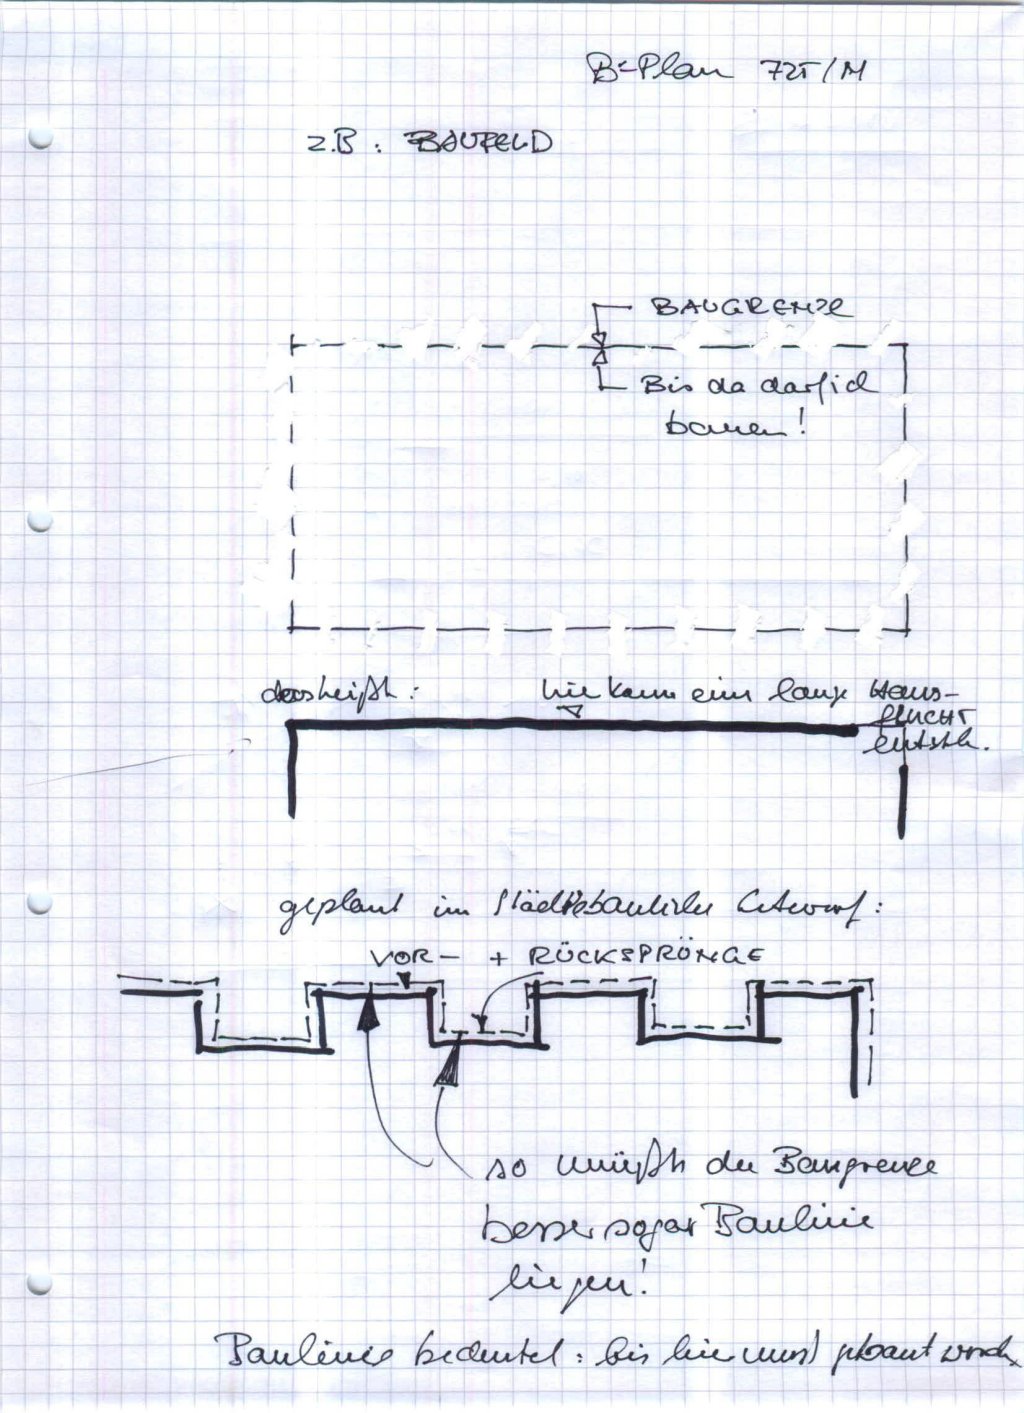 B-Plan 725/M
z.B: BAUFELD
BAUGRENZE
Bis da darf ich
bauen!
das heißt: hie kann eine lange Haus-
FLUCHT
entsth.
geplant im Städtebaulichen Entwurf:
VOR- + RÜCKSPRÜNGE
so müßth die Baugrenze
besser sogar Baulinie
liegen!
Baulinie bedeutet: bis hier muss gebaut werden